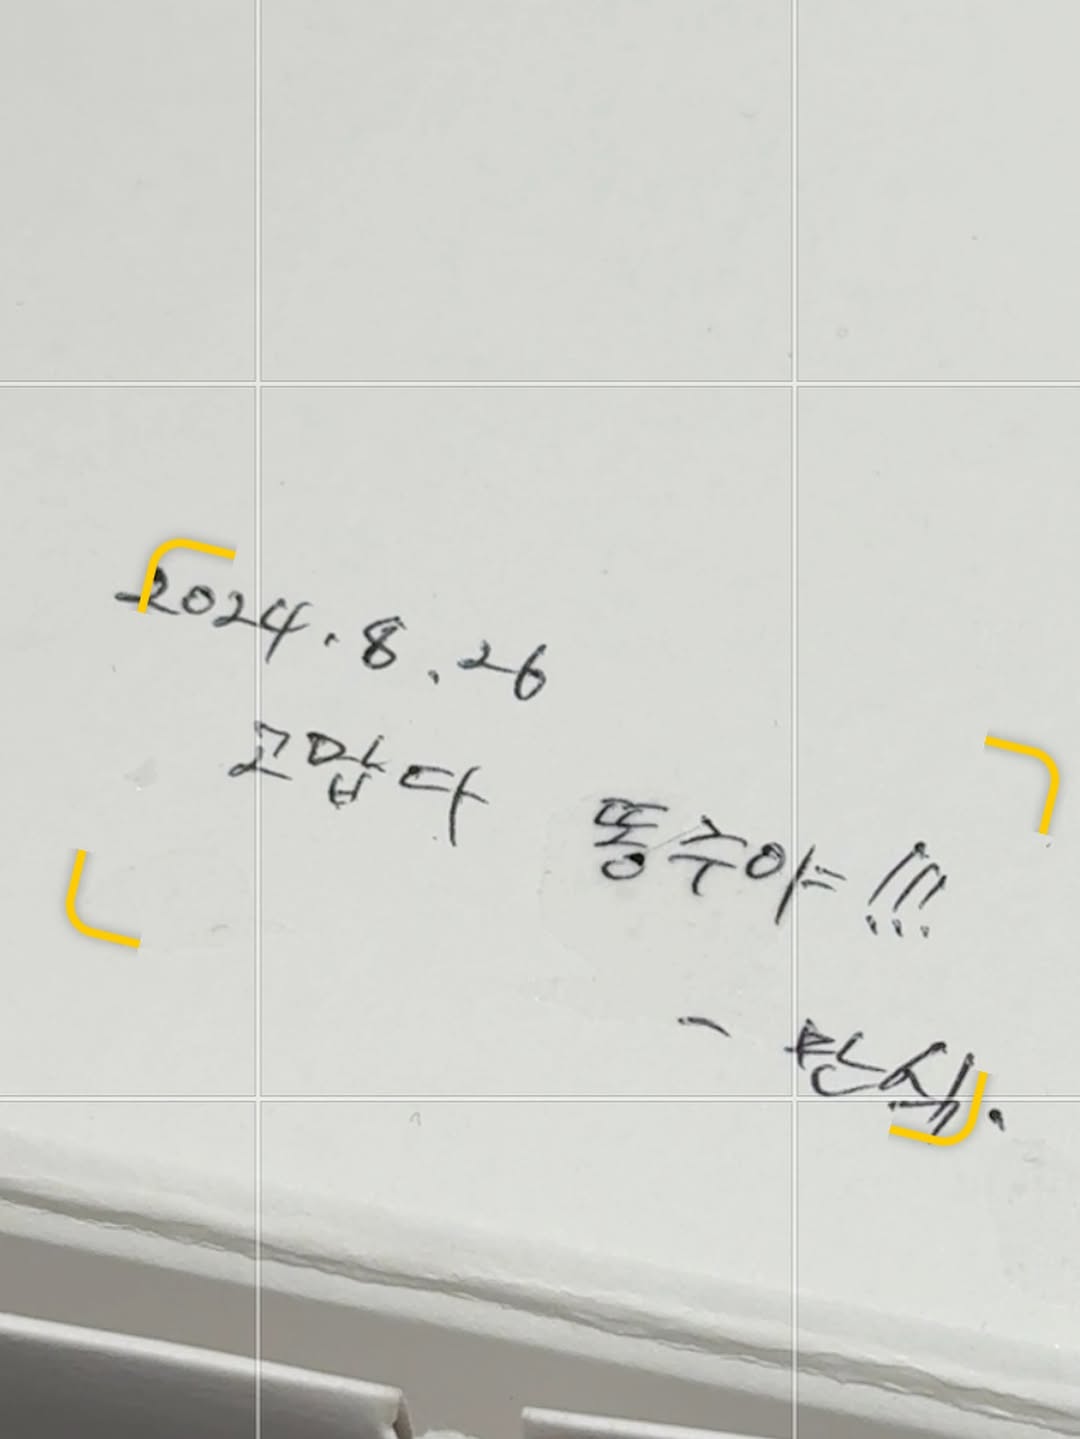 2024.8.26
고맙다 똥주아!!!
- 찬식.